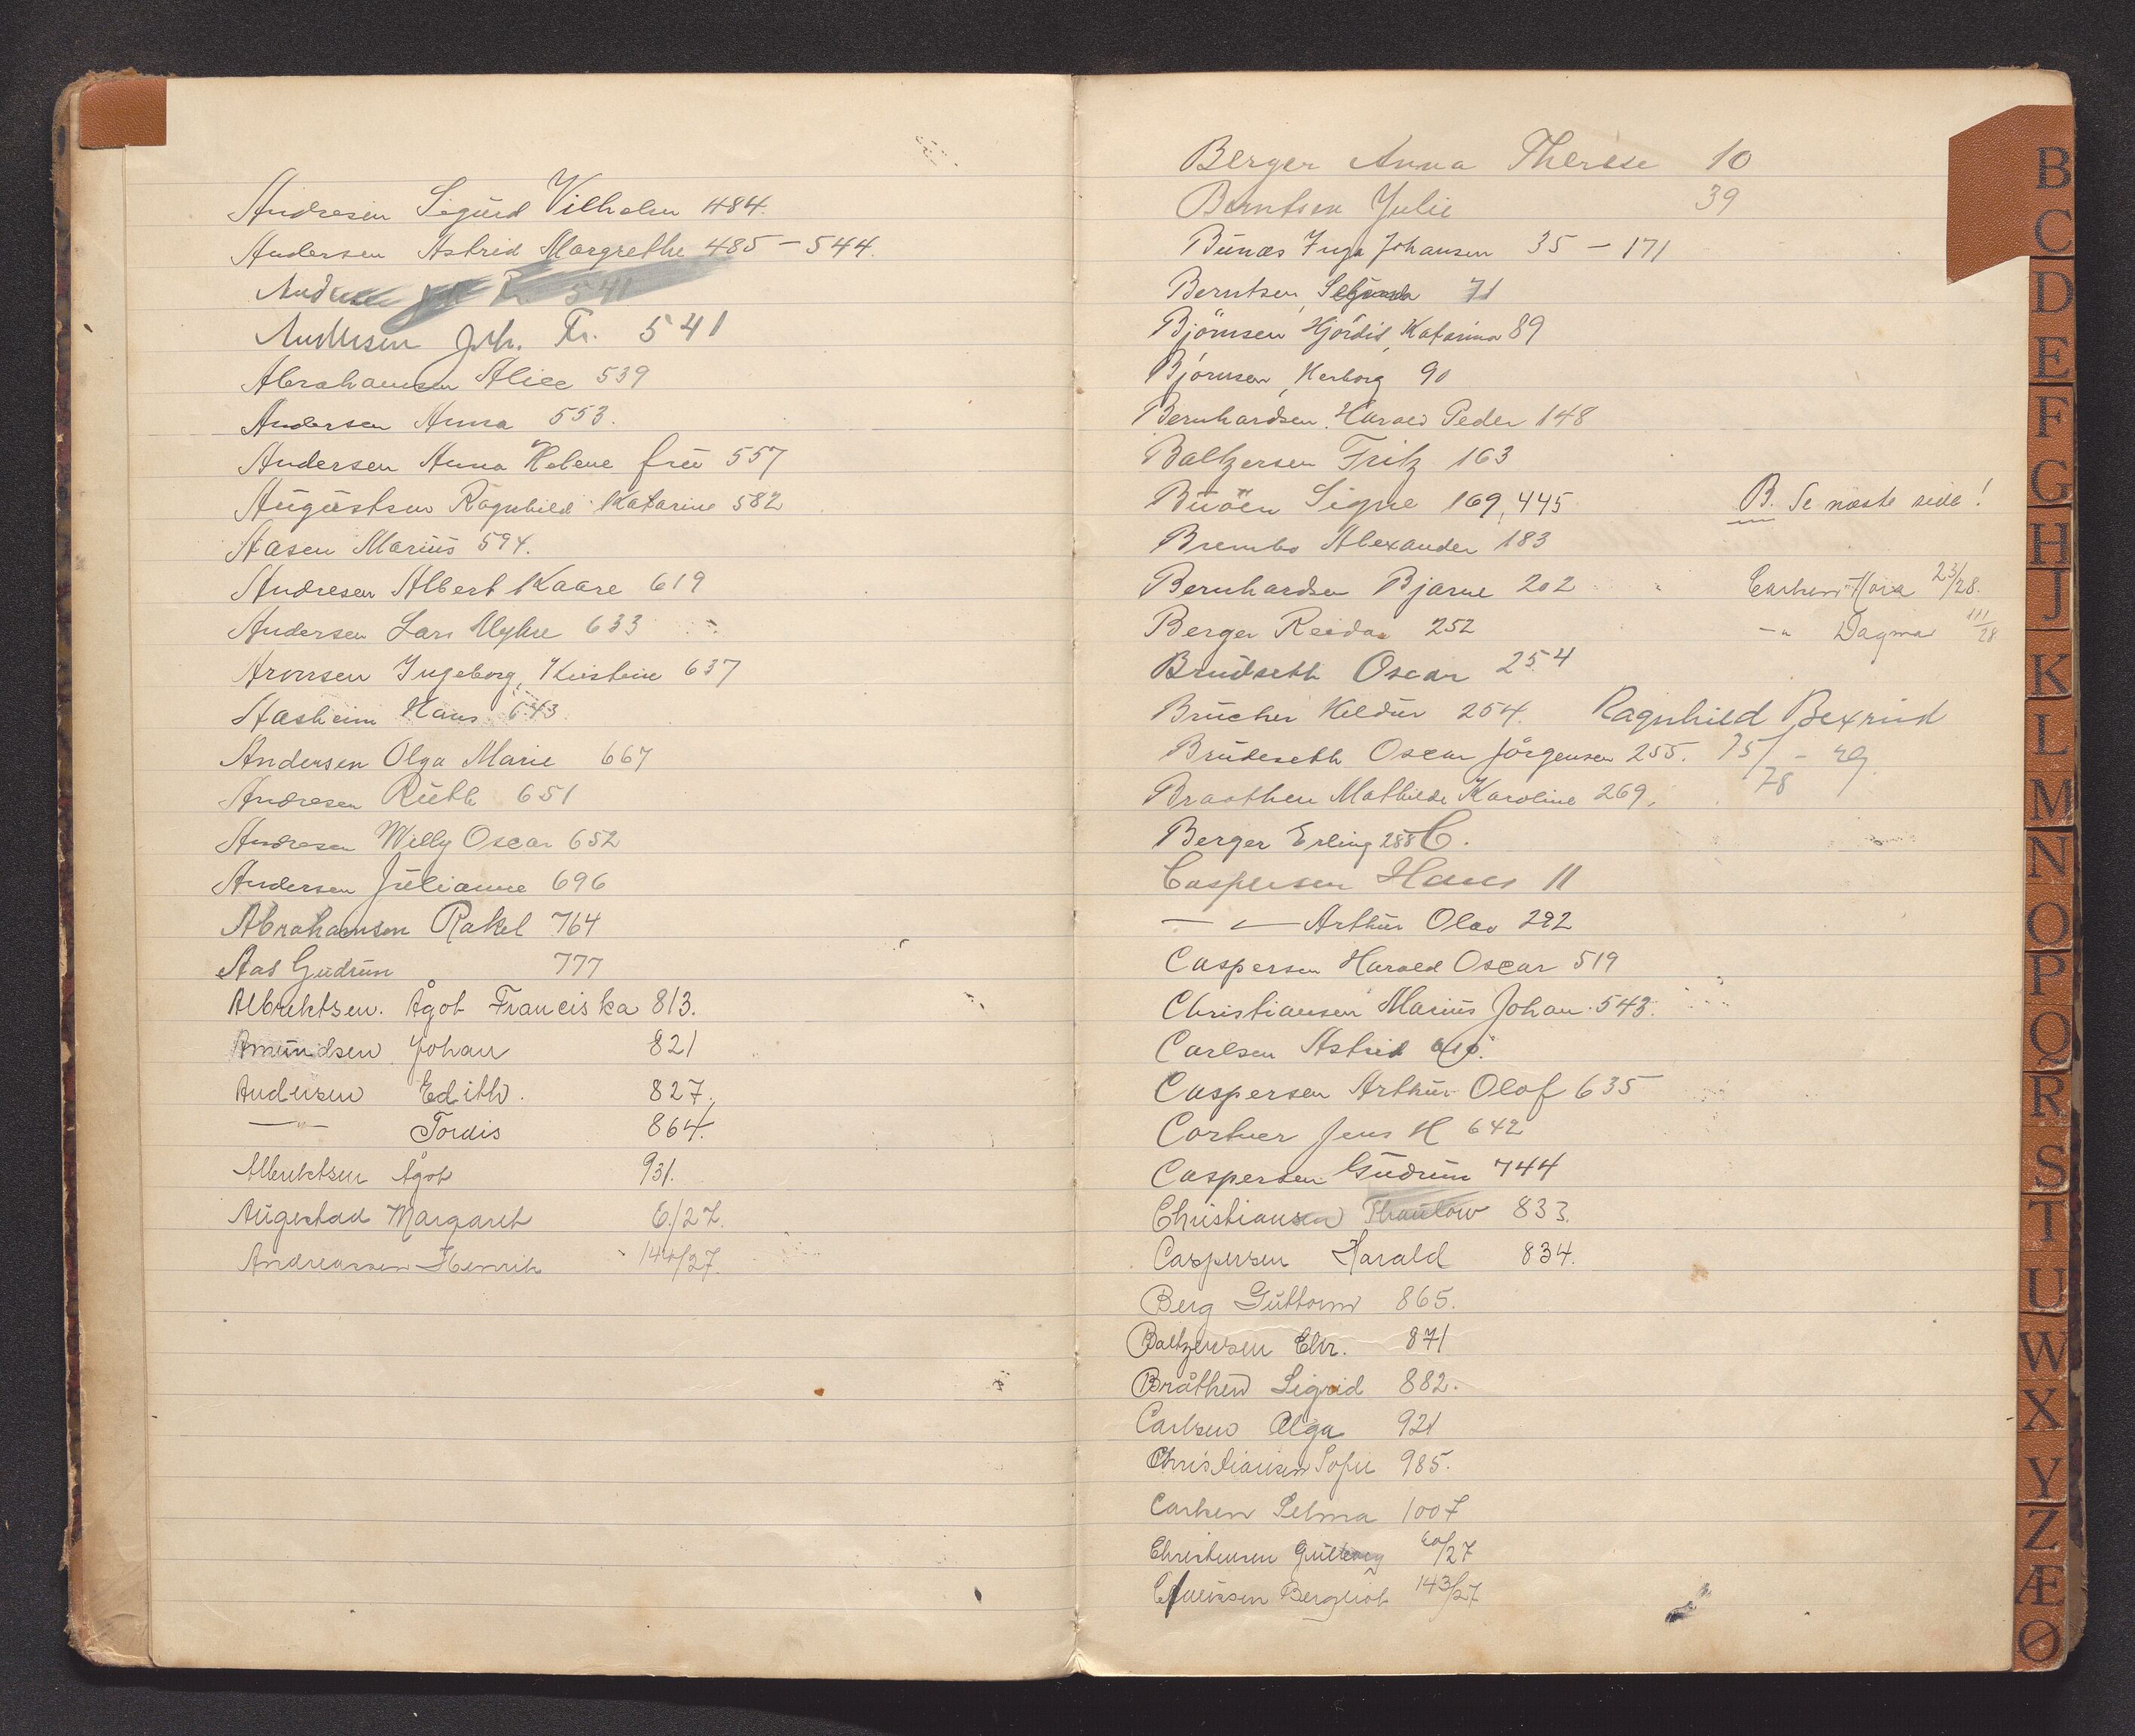 Andresen Sigurd Vilhelm 484.
Andersen Astrid Margrethe 485 – 544.
541
Andersen Joh. Fr. 541
Abrahamsen Alice 539
Andersen Anna 553.
Andersen Anna Helene frü 557
Augustsen Ragnhild Katarine 582
Aasen Marius 594.
Andresen Albert Kaare 619
Andersen Lars Myhre 633
Aronsen Ingeborg, Kirstine 637
Aasheim Hans 643
Andersen Olga Marie 667
Andresen Ruth 651
Andresen Willy Oscar 652
Andersen Julianne 696
Abrahamsen Rakel 764
Aas Gudrun 777
Albrektsen. Ågot Franciska 813.
Amundsen Johan 821
Andersen Edith. 827.
—"— Tordis 864.
Albrektsen Ågot 931.
Augestad Margaret 6/27.
Andreassen Henrik 144/27.
Berger Anna Therese 10
Berntsen Julie 39
Bunæs Inga Johansen 35 – 171
Berntsen, 71
Björnsen, Hjördis, Katarina 89
Björnsen, Herborg 90
Bernhardsen, Harald Peder 148
Baltzersen Fritz 163
Buöen Signe 169, 445
B. Se næste side!
Brembo Alexander 183
Bernhardsen Bjarne 202
Carlsen 23/28.
Berger Reidar 252
–"– Dagmar 111/28
Brudseth Oscar 254
Brücher Heldur 254. Ragnhild Bexrud
Brudeseth Oscar Jörgensen 255. 75/78 – 29
Braathen Mathilde Karoline 269.
Berger Erling 288 C.
Caspersen Hans 11
— " — Arthur Olav 292
Caspersen Harald Oscar 519
Christiansen Marius Johan. 543.
Carlsen Astrid
Caspersen Arthur Olof 635
Cortner Jens H 642
Caspersen Gudrun 744
Christiansen Thaulow 833.
Caspersen Harald 834.
Berg Guttorm 865.
Baltzersen Chr. 871
Bråthen Sigrid 882.
Carlsen Olga 921
Christiansen Sofie 985.
Carlsen Selma 1007
Christensen 60/27
Bergliot 143/27
B
C
D
E
F
G
H
J
K
L
M
N
O
P
Q
R
S
T
U
W
X
Y
Z
Æ
Ø